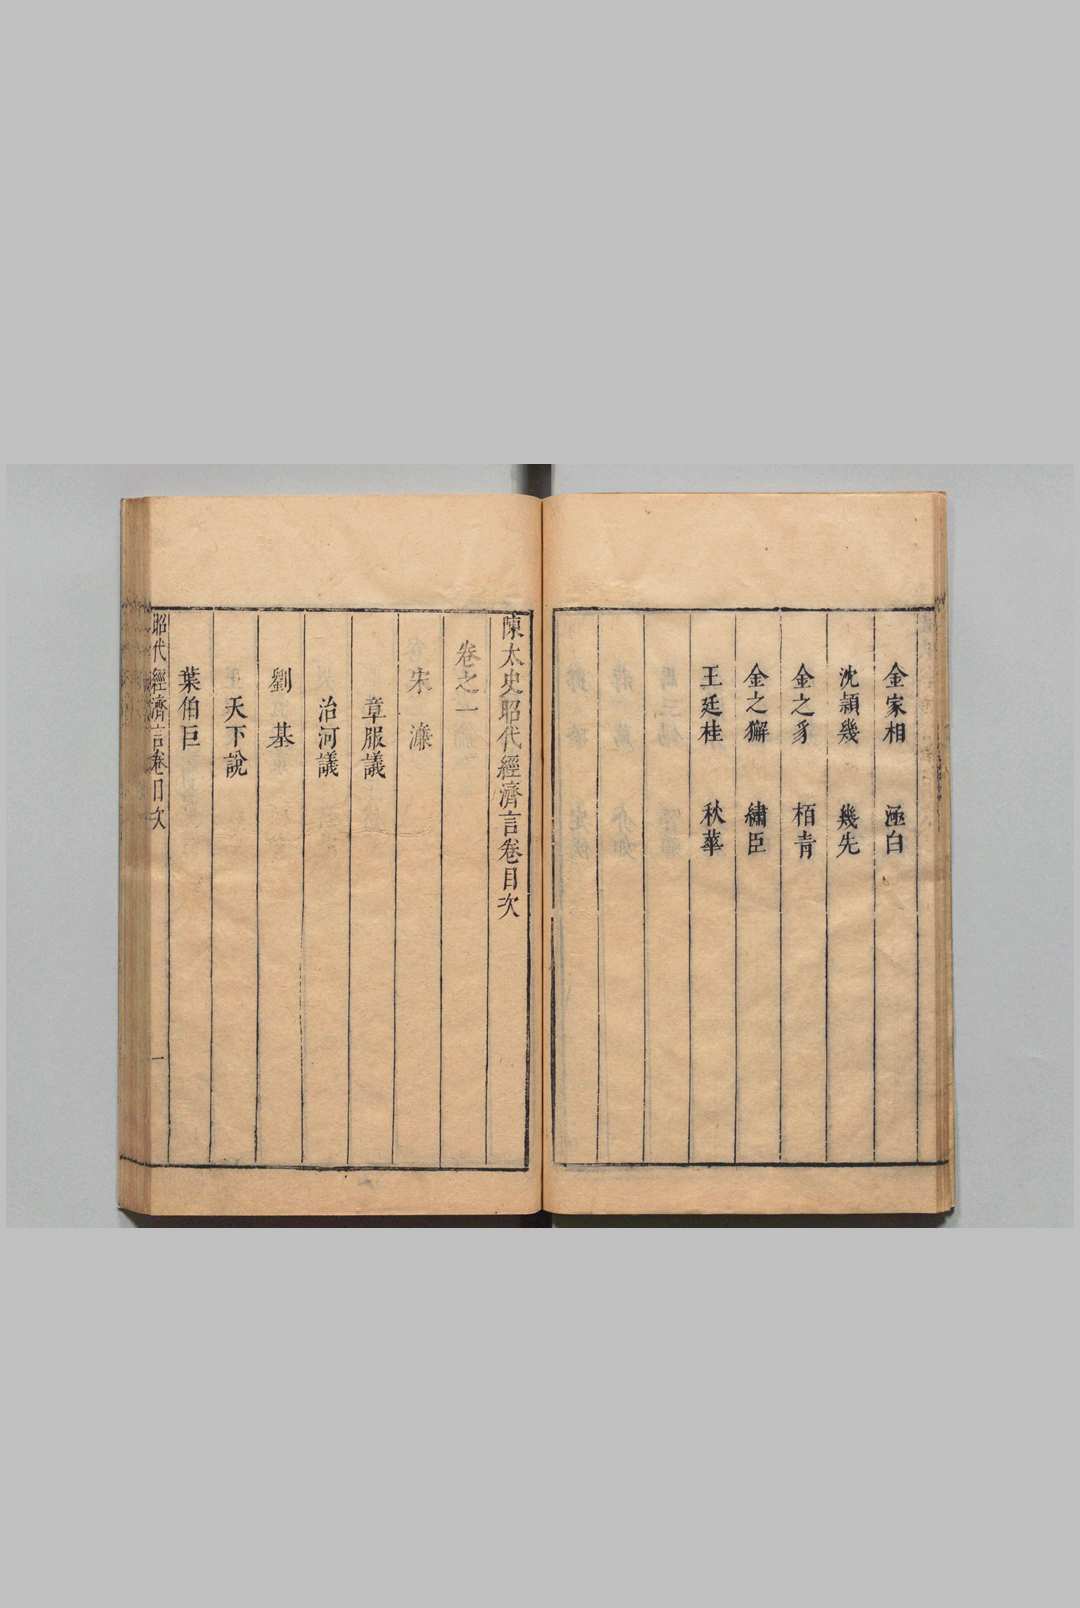 金家相 涵白
沈頴幾 幾先
金之豸 栢青
金之獬 繡臣
王廷桂 秋華
陳太史昭代經濟言卷目次
卷之一
宋濂
章服議
治河議
劉基
天下說
葉伯巨
昭代經濟言卷目次 一